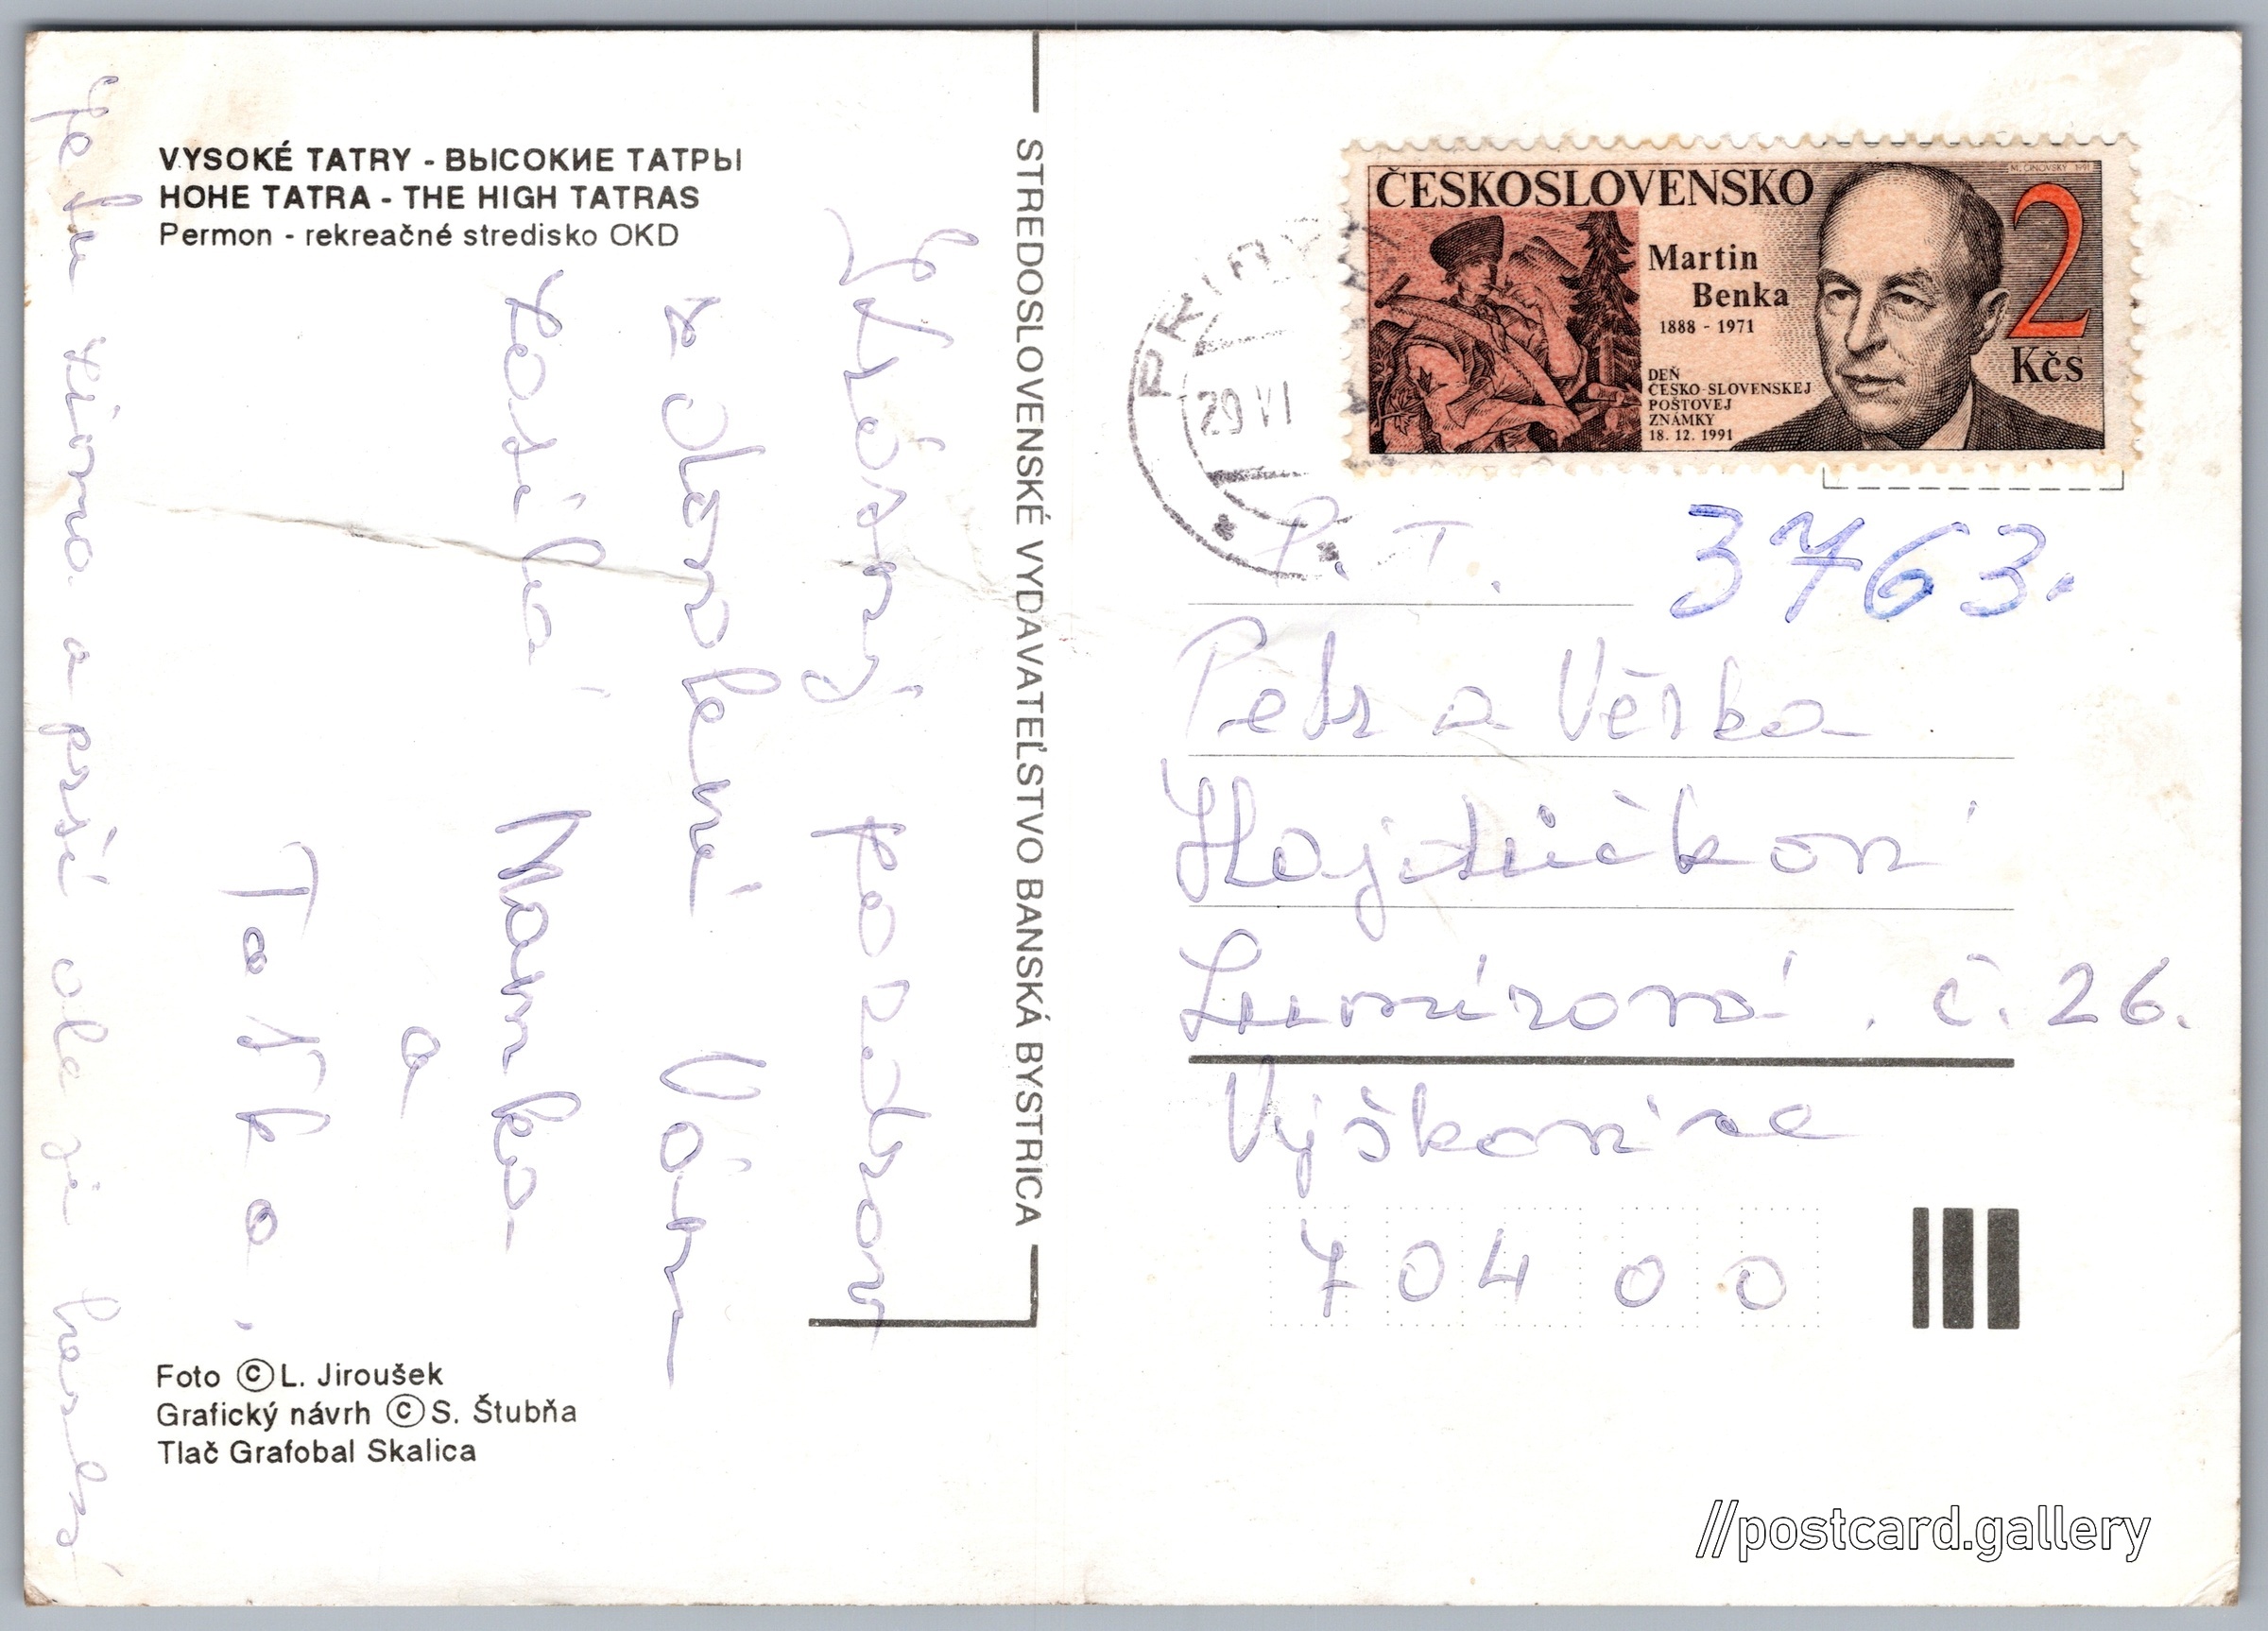 VYSOKÉ TATRY - ВЫСОКИЕ ТАТРЫ
HOHE TATRA - THE HIGH TATRAS
Permon - rekreačné stredisko OKD
Krásný pozdrav
z dovolené Vám
posílá Mamka
a
Taťka.
Je tu zima a prší ale je hezky
Foto © L. Jiroušek
Grafický návrh © S. Štubňa
Tlač Grafobal Skalica
STREDOSLOVENSKÉ VYDAVATEĽSTVO BANSKÁ BYSTRICA
29 VI
ČESKOSLOVENSKO
M. ČINOVSKÝ 1991
Martin
Benka
1888 - 1971
DEŇ
ČESKO-SLOVENSKEJ
POŠTOVEJ
ZNÁMKY
18. 12. 1991
2
Kčs
P. T. 3763.
Petr a Věrka
Lumírová. č. 26.
Výškovice
704 00
//postcard.gallery